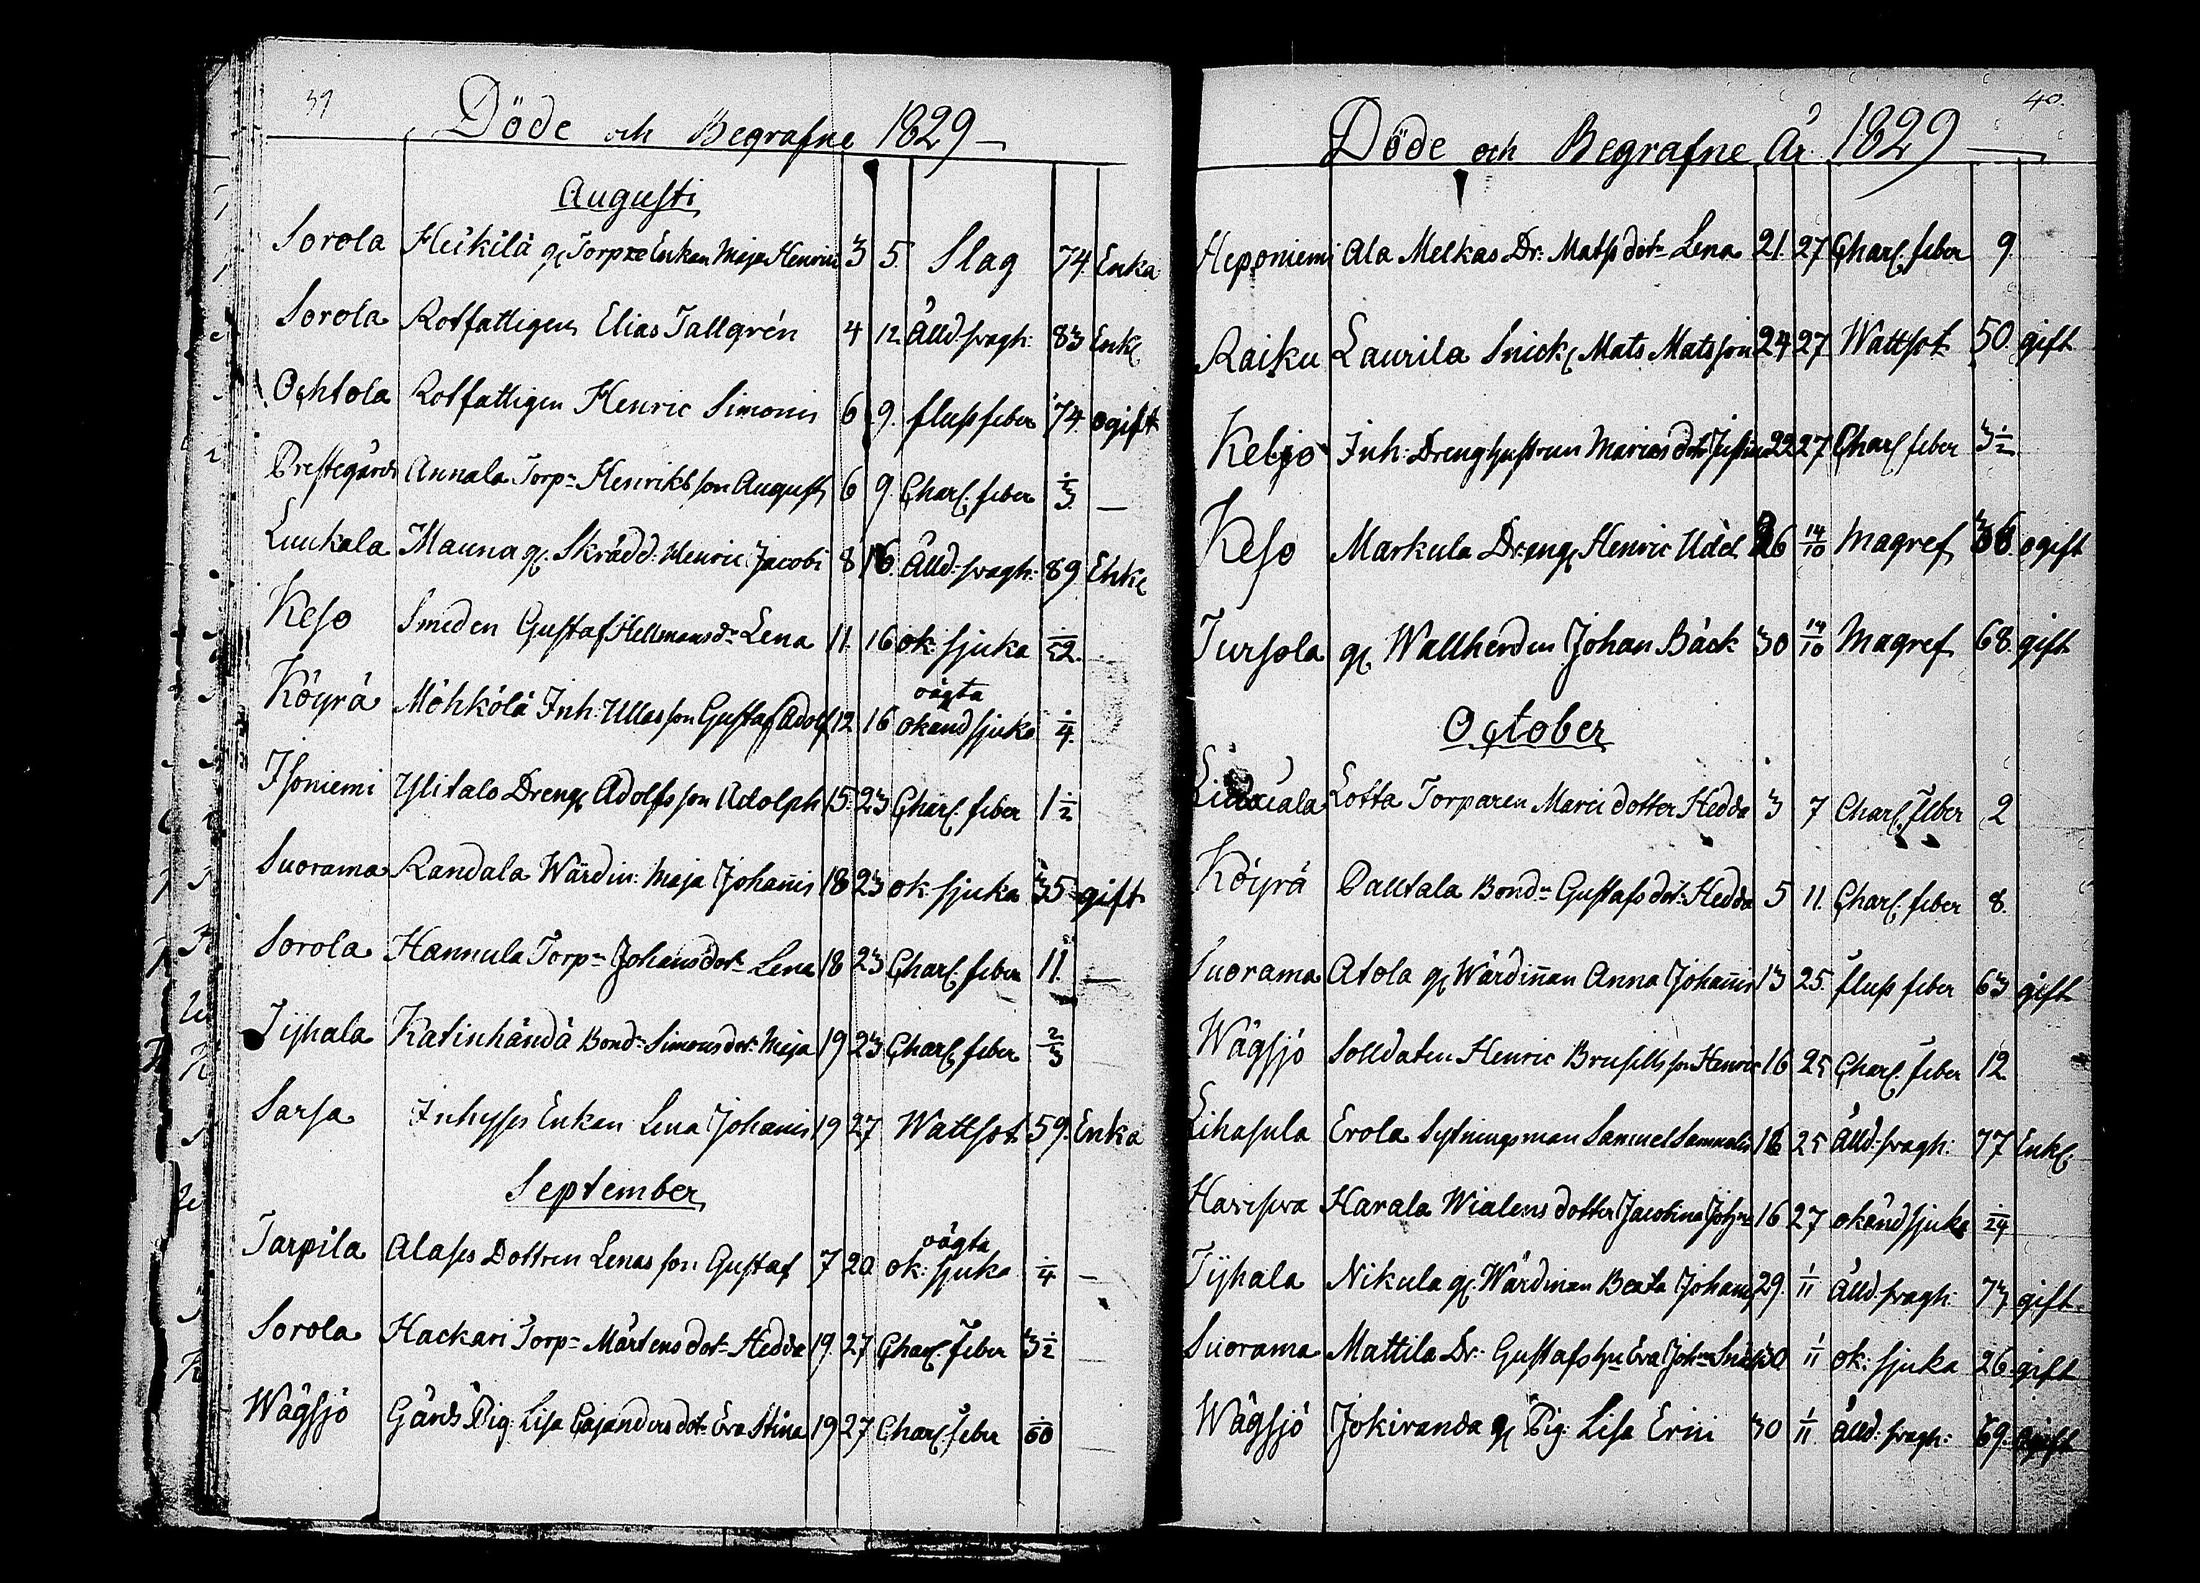 39
Döde och Begrafne 1829
Augusti
Sorola Heikilä gl Torpare Enkan Maja Henrici 3 5 Slag 74 Enka
Sorola Rotfattigen Elias Tallgrén 4 12 Ålld. svagh: 83 Enkl
Ochtola Rotfattigen Henric Simonis 6 9. fluss feber 74. ogift
Prestegårds Annala Torp= Henriks son August 6 9. Charl. feber 2/3. —
Luukala Mauna gl. Skrädd: Henric Jacobi 8 16. Ålld. svagh: 89 Enkl
Keso Smeden Gustaf Hellmans dr Lena 11. 16 ok: sjuka 1/52.
Köyrä Möhkölä Inh: Ullas son Gustaf Adolf 12 16 oägta okänd sjuka 1/4.
Isoniemi Ylitalo Dreng Adolfs son Adolph 15. 23 Charl. feber 1 1/2
Suorama Randala Wärdin: Maja Johañis 18 23 ok. sjuka 35 gift
Sorola Hannula Torp= Johans dotr Lena 18 23 Charl. feber 11. —
Tijhala Katinhändä Bond= Simons dotr Maja 19 23 Charl. feber 2/3
Sarsa Inhyses Enkan Lena Johanis 19 27 Wattsot 59. Enka
September
Tarpila Alases Dottren Lenas son Gustaf 7 20 oägta ok: sjuka 1/4 —
Sorola Hackari Torp= Mårtens dotr Hedda 19. 27 Charl. feber 3 1/2
Wägsjö Gårds Pig: Lisa Cajanders dotr Eva Stina 19 27 Charl. feber 1/50
40.
Döde och Begrafne År 1829
Heponiemi Ala Melkas Dr: Mats dotr Lena 21. 27 Charl. feber 9.
Raiku Laurila Snick. Mats Matsson 24 27 Wattsot 50. gift
Keljo Inh: Dreng hustrun Marias dotr 22 27 Charl feber 3 1/2
Keso Markula Dreng Henric Udd 26 14/10 Magref 36. ogift
Tursola gl. Wallherden Johan Bäck 30 14/10 Magref 68. gift
October
Lotta Torparen Marci dotter Hedda 3 7 Charl. feber 2
Köyrä Pauttala Bond= Gustafs dotr Hedda 5 11. Charl. feber 8.
Suorama Atola gl Wärdiñan Anna Johañis 13 25. fluss feber 63 gift
Wägsjö Solldaten Henric Brusills son Henric 16 25 Charl. feber 12
Lihasula Erola Sytningsman Samuel Samuelis 16 25 Ålld. svagh: 77 Enkl.
Harisva Harala Wialens dotter Jacobina 16 27 okänd sjuka 1/24
Tijhala Nikula gl. Wärdinan Beata Johanis 29. 1/11 Ålld. svagh: 73 gift
Suorama Mattila Dr: Gustafs hu Eva 30 1/11 ok: sjuka 26. gift
Wägsjö Jokiranda gl Pig: Lisa Erici 30 1/11 Ålld: svagh: 69. ogift